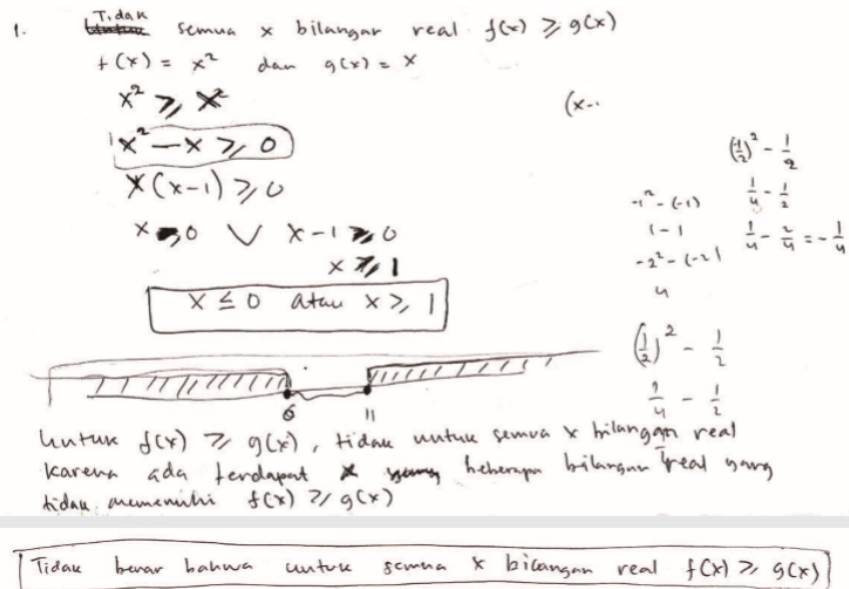 Tidak
1. untuk semua x bilangan real f(x) ≥ g(x)
f(x) = x² dan g(x) = x
x² ≥ x
x² - x ≥ 0
x(x-1) ≥ 0
x ≤ 0 ∨ x-1 ≥ 0
x ≥ 1
x ≤ 0 atau x ≥ 1
0 1
(x-
(1/2)² - 1/2
1/4 - 1/2
1/4 - 2/4 = -1/4
-1² - (-1)
1 - 1
-2² - (-2)
4
(1/2)² - 1/2
1/4 - 1/2
Untuk f(x) ≥ g(x), tidak untuk semua x bilangan real
karena ada terdapat beberapa bilangan real yang
tidak memenuhi f(x) ≥ g(x)
Tidak benar bahwa untuk semua x bilangan real f(x) ≥ g(x)